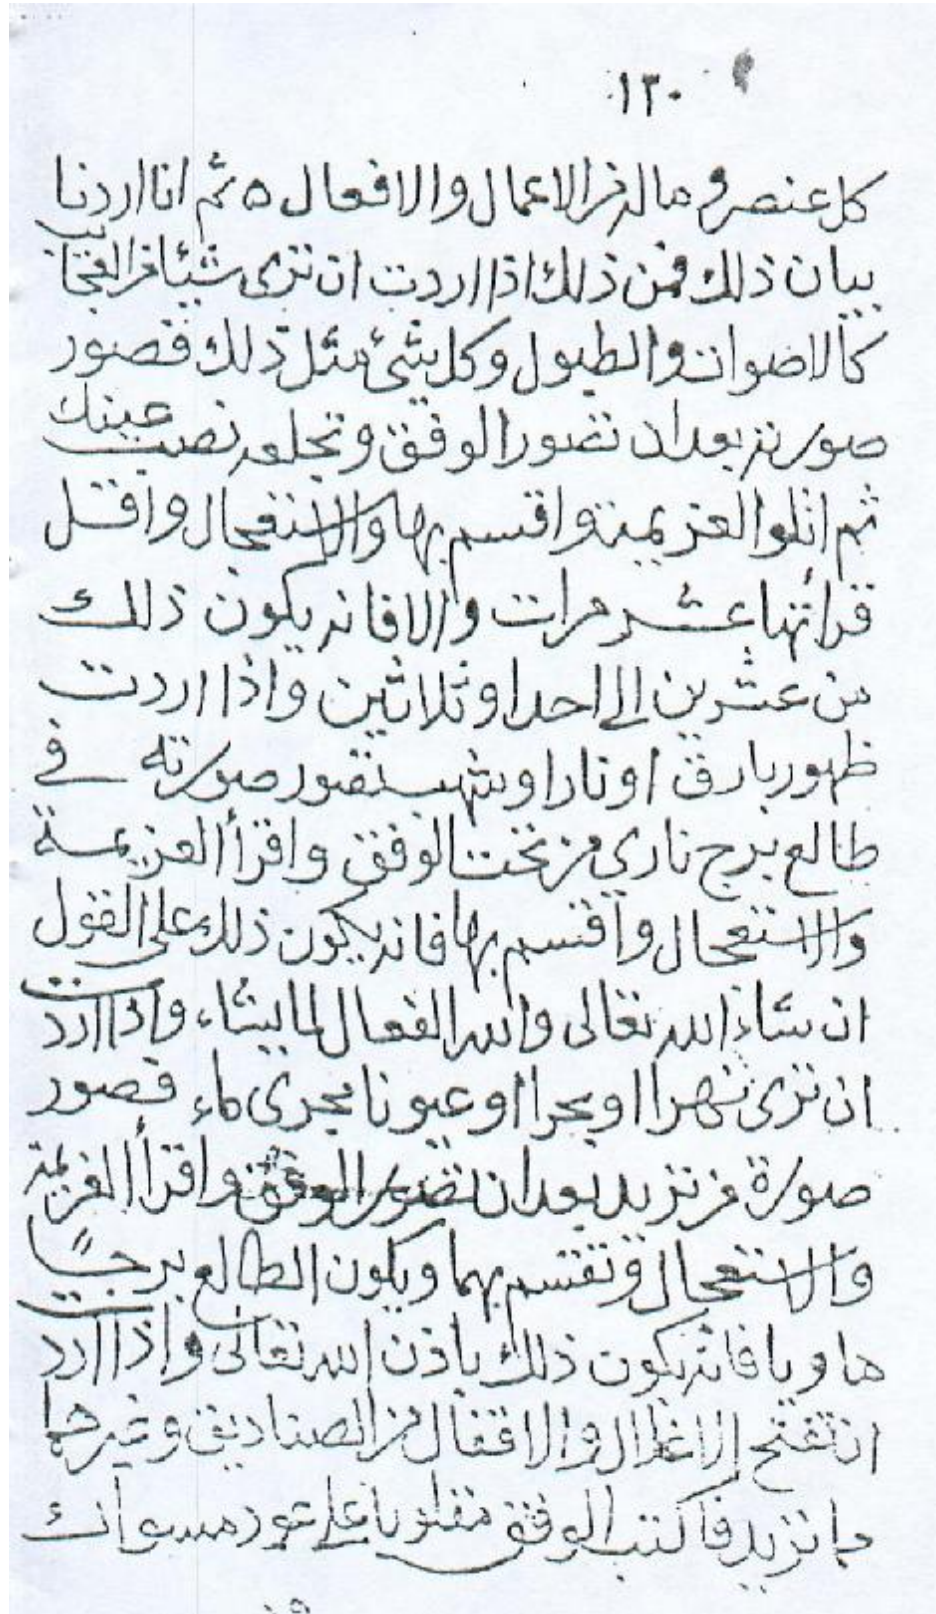 ١٣٠
كل عنصر وماله من الاعمال والافعال ٥ ثم انا اردنا
بيان ذلك فمن ذلك اذا اردت ان ترى شيئا من العجائب
كالاصوات والطبول وكل شئ مثل ذلك فصور
صورته بعد ان تصور الوفق وتجعله نصب عينك
ثم اتلوا العزيمة واقسم بها والاستعجال واقل
قرأتها عشر مرات والا فانه يكون ذلك
من عشرين الى احدا وثلاثين واذا اردت
ظهور بارق او نار او شهب تصور صورته في
طالع برج ناري من تحت الوفق واقرأ العزيمة
والاستعجال واقسم بها فانه يكون ذلك على القول
ان شاء الله تعالى والله الفعال لما يشاء، واذا اردت
ان ترى نهرا او بحرا او عيونا يجرى ماء فصور
صورة من تريد بعد ان تصور الوفق واقرأ العزيمة
والاستعجال وتقسم بهما ويكون الطالع برجًا
هاويا فانه يكون ذلك باذن الله تعالى واذا اردت
ان تفتح الاغلال والاقفال من الصناديق وغيرهما
مما تريد فاكتب الوفق مقلوبا على عود مسواك